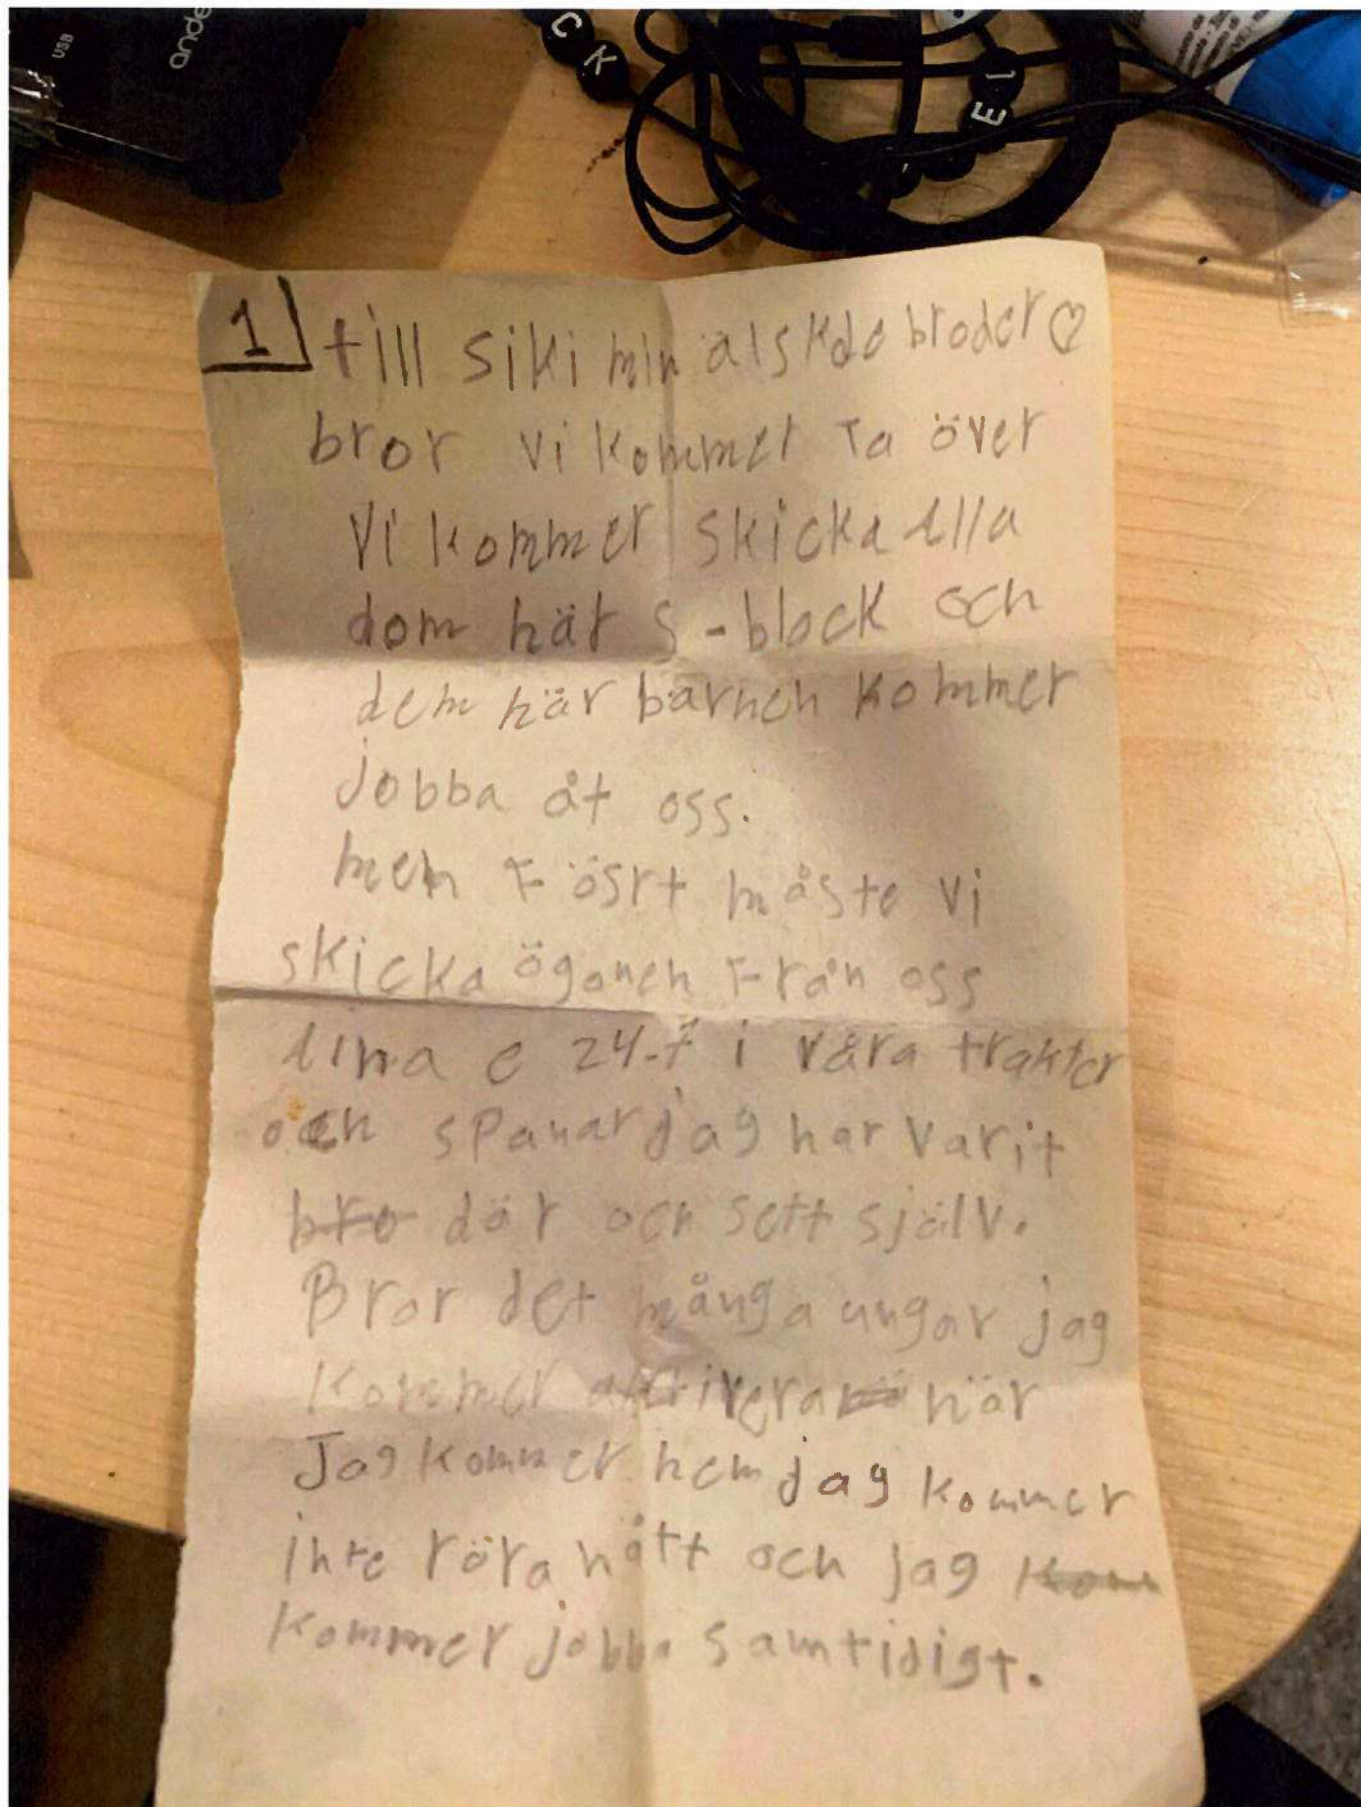 USB
ande
C K
E I
1 till siki min älskde broder♡
bror vi kommer ta över
vi kommer skicka alla
dom här S-block och
dem här barnen kommer
jobba åt oss.
men Fösrt måste vi
skicka ögonen Från oss
aina e 24-7 i våra trakter
och spanar jag har varit
bro där och sett själv.
Bror det många ungar jag
kommer aktivera när
Jag kommer hem jag kommer
inte röra nått och jag
kommer jobba samtidigt.